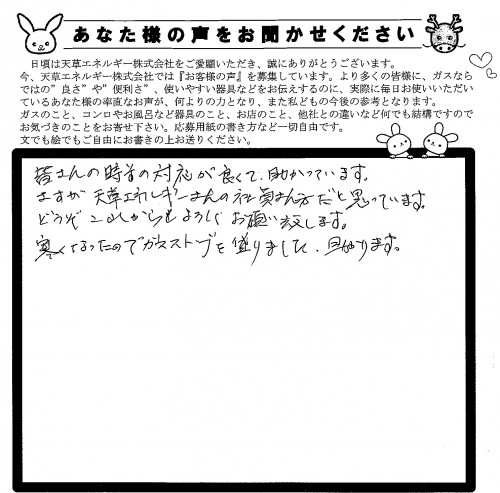 あなた様の声をお聞かせください
日頃は天草エネルギー株式会社をご愛顧いただき、誠にありがとうございます。
今、天草エネルギー株式会社では『お客様の声』を募集しています。より多くの皆様に、ガスなら
ではの”良さ”や”便利さ”、使いやすい器具などをお伝えするのに、実際に毎日お使いいただい
ているあなた様の率直なお声が、何よりの力となり、また私どもの今後の参考となります。
ガスのこと、コンロやお風呂など器具のこと、お店のこと、他社との違いなど何でも結構ですので
お気づきのことをお寄せ下さい。応募用紙の書き方など一切自由です。
文でも絵でもご自由にお書きの上お送りください。
皆さんの時々の対応が良くて、助かっています。
さすが天草エネルギーさんの社員さん方だと思っています。
どうぞこれからもよろしくお願い致します。
寒くなったのでガスストーブを借りました、助かります。